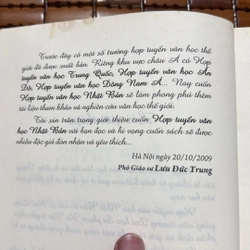 Trước đây có một số trường hợp tuyển văn học thế
giới đã được xuất bản. Riêng khu vực châu Á có Hợp
tuyển văn học Trung Quốc, Hợp tuyển văn học Ấn
Độ, Hợp tuyển văn học Đông Nam Á... Nay cuốn
Hợp tuyển văn học Nhật Bản sẽ làm phong phú thêm
tài liệu tham khảo và nghiên cứu văn học thế giới.
Tôi xin trân trọng giới thiệu cuốn Hợp tuyển văn
học Nhật Bản với bạn đọc và hi vọng cuốn sách sẽ được
nhiều độc giả đón nhận và yêu thích...
Hà Nội ngày 20/10/2009
Phó Giáo sư Lưu Đức Trung